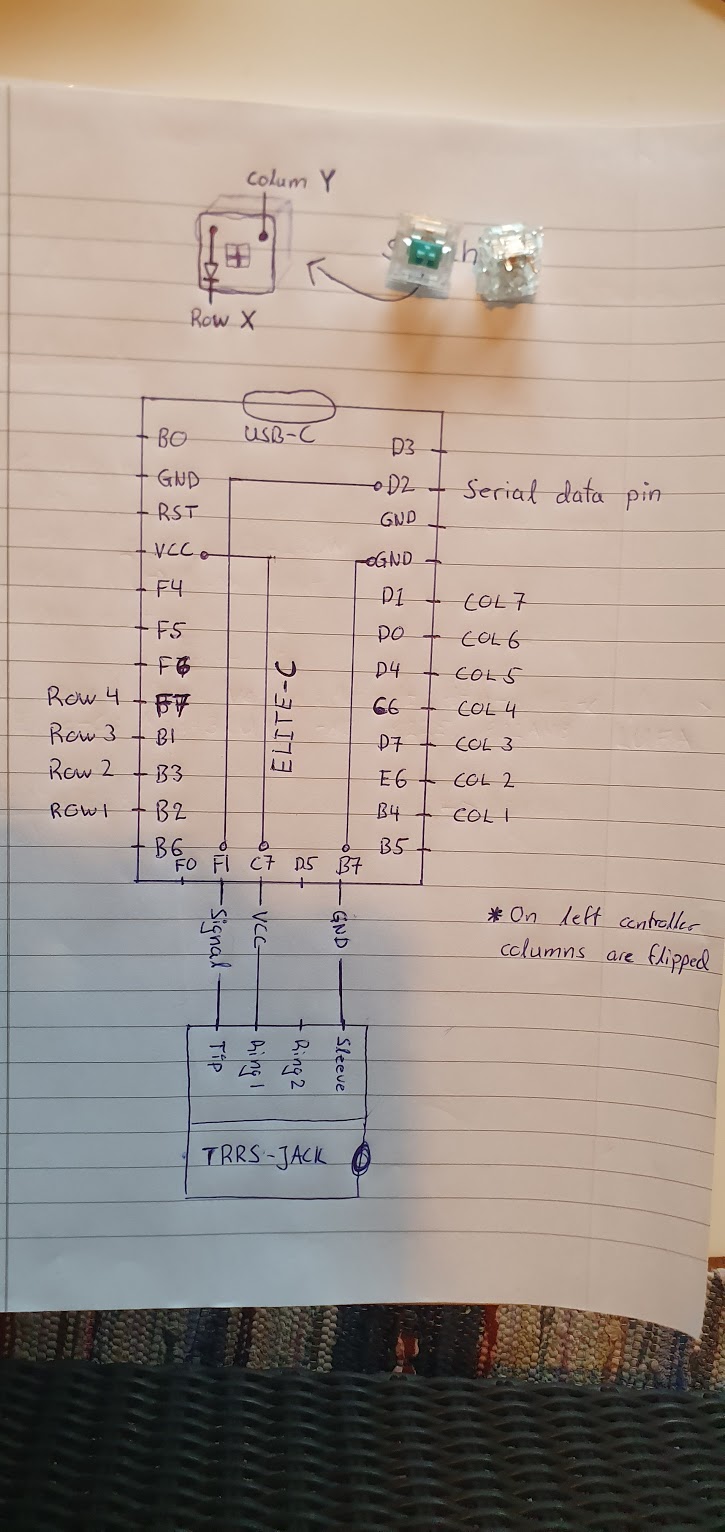 Colum Y
Row X
USB-C
B0
GND
RST
VCC
F4
F5
F6
Row 4 F7
Row 3 B1
Row 2 B3
ROW 1 B2
B6
D3
D2 Serial data pin
GND
GND
D1 COL 7
D0 COL 6
D4 COL 5
C6 COL 4
D7 COL 3
E6 COL 2
B4 COL 1
B5
ELITE-C
F0 F1 C7 D5 B7
Signal
VCC
GND
* On left controller
columns are flipped
Tip
Ring 1
Ring 2
Sleeve
TRRS-JACK